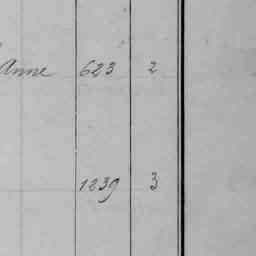 Anne 623 2
1239 3